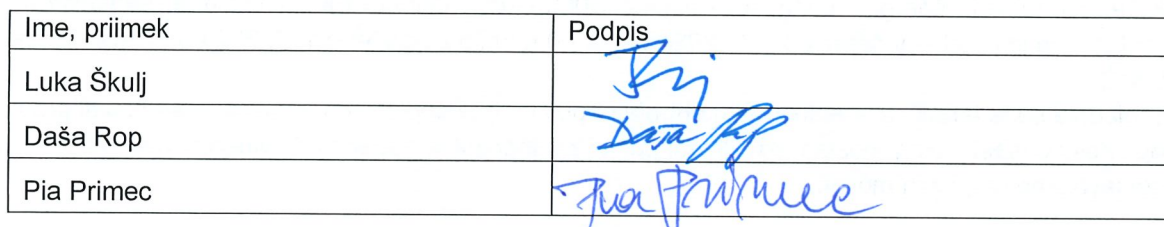 Ime, priimek Podpis
Luka Škulj
Daša Rop Daša Rop
Pia Primec Pia Primec